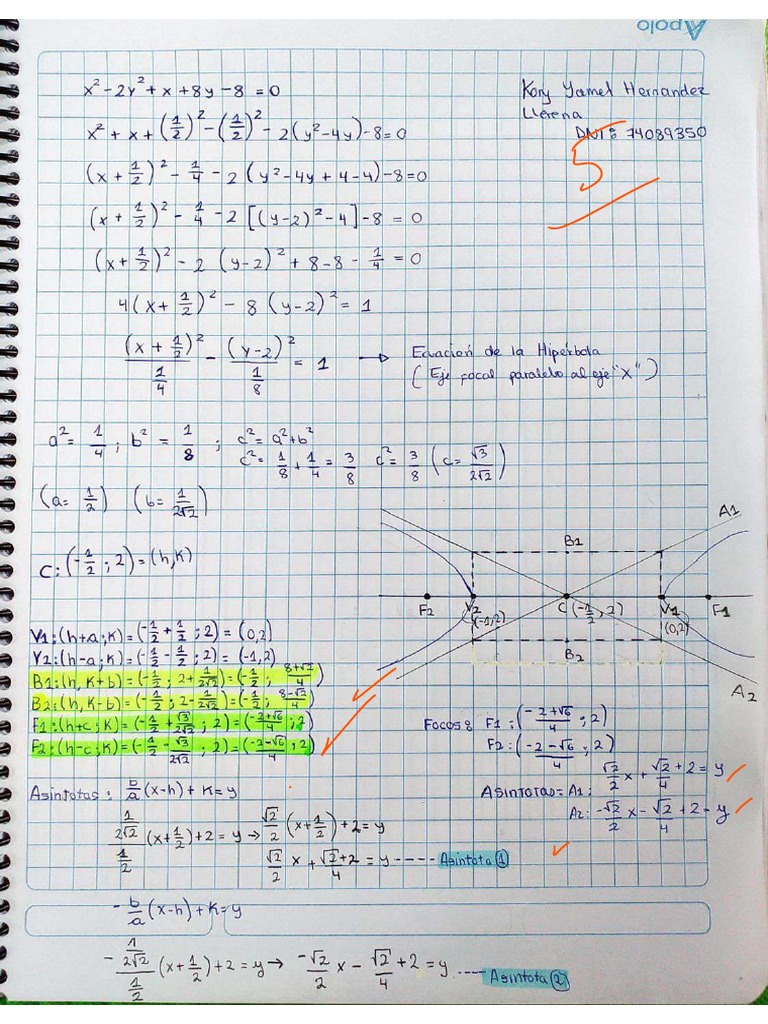 Apolo
x² - 2y² + x + 8y - 8 = 0
Kory Yamel Hernandez
Llerena
DNI: 74089350
5
x² + x + (1/2)² - (1/2)² - 2(y² - 4y) - 8 = 0
(x + 1/2)² - 1/4 - 2(y² - 4y + 4 - 4) - 8 = 0
(x + 1/2)² - 1/4 - 2[(y-2)² - 4] - 8 = 0
(x + 1/2)² - 2(y-2)² + 8 - 8 - 1/4 = 0
4(x + 1/2)² - 8(y-2)² = 1
(x + 1/2)²/(1/4) - (y-2)²/(1/8) = 1 → Ecuación de la Hipérbola
(Eje focal paralelo al eje "x")
a² = 1/4 ; b² = 1/8 ; c² = a² + b²
c² = 1/8 + 1/4 = 3/8 c² = 3/8 (c = √3/2√2)
(a = 1/2) (b = 1/2√2)
C: (-1/2 ; 2) = (h, k)
A1
B1
F2 V2 (-1,2) C (-1/2, 2) V1 (0,2) F1
B2
A2
V1: (h+a ; k) = (-1/2 + 1/2 ; 2) = (0,2)
V2: (h-a ; k) = (-1/2 - 1/2 ; 2) = (-1,2)
B1: (h, k+b) = (-1/2 ; 2 + 1/2√2) = (-1/2 ; 8+√2/4)
B2: (h, k-b) = (-1/2 ; 2 - 1/2√2) = (-1/2 ; 8-√2/4)
F1: (h+c ; k) = (-1/2 + √3/2√2 ; 2) = (-2+√6/4 ; 2)
F2: (h-c ; k) = (-1/2 - √3/2√2 ; 2) = (-2-√6/4 ; 2)
Focos: F1: (-2+√6/4 ; 2)
F2: (-2-√6/4 ; 2)
Asintotas = A1: √2/2 x + √2/4 + 2 = y
A2: -√2/2 x - √2/4 + 2 = y
Asintotas: b/a (x-h) + k = y
(1/2√2)/(1/2) (x + 1/2) + 2 = y → √2/2 (x + 1/2) + 2 = y
√2/2 x + √2/4 + 2 = y ---- Asintota 1
-b/a (x-h) + k = y
-(1/2√2)/(1/2) (x + 1/2) + 2 = y → -√2/2 x - √2/4 + 2 = y ---- Asintota 2